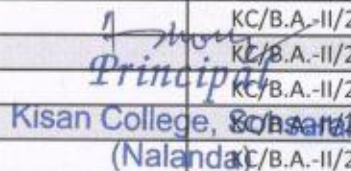 KC/B.A.-II/2
KC/B.A.-II/2
Principal KC/B.A.-II/2
Kisan College, KC/B.A.-II/2
(Nalanda) KC/B.A.-II/2